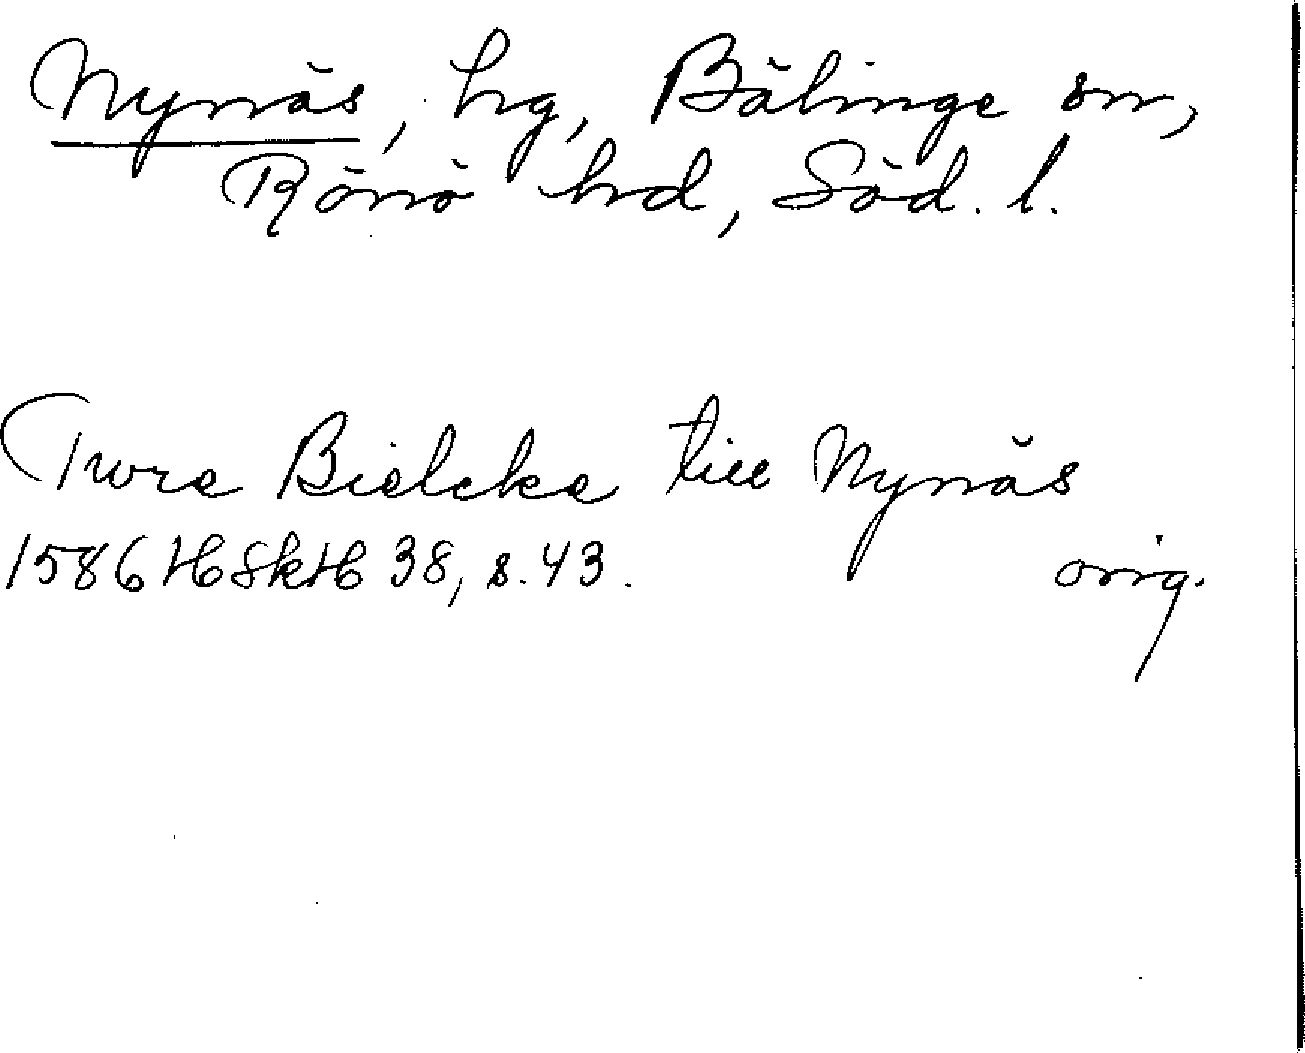 Nynäs, hg, Bälinge sn,
Rönö hd, Söd. l.
Twre Bielcke till Nynäs
1586 HSkH 38, s. 43. orig.